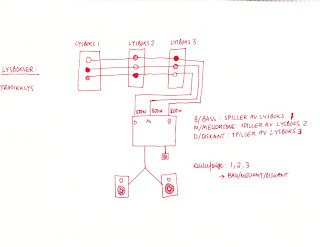 LYSBOKS 1 LYSBOKS 2 LYSBOKS 3
LYSBOKSER:
TRAFIKKLYS
800W 800W 800W
B M D
B/BASS: SPILLER AV LYSBOKS 1
M/MELLOMTONE: SPILLER AV LYSBOKS 2
D/DISKANT: SPILLER AV LYSBOKS 3
Rekkefølge: 1, 2, 3
→ BASS/MELLOMT/DISKANT